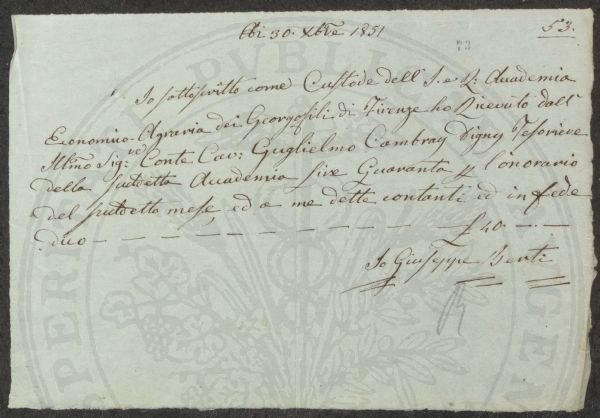 Adi 30. Xbre 1851
53.
Io sottoscritto come Custode dell' I. e R. Accademia
Economico-Agraria dei Georgofili di Firenze ho Ricevuto dall'
Illmo Sig:re Conte Cav: Guglielmo Cambray Digny Tesoriere
della suddetta Accademia Lire Quaranta p l'onorario
del suddetto mese, ed a me dette contanti ed in fede
dico — — — — — — — — — — £ 40. —.—
Io Giuseppe Benti
PUBLI
PERP
GEN